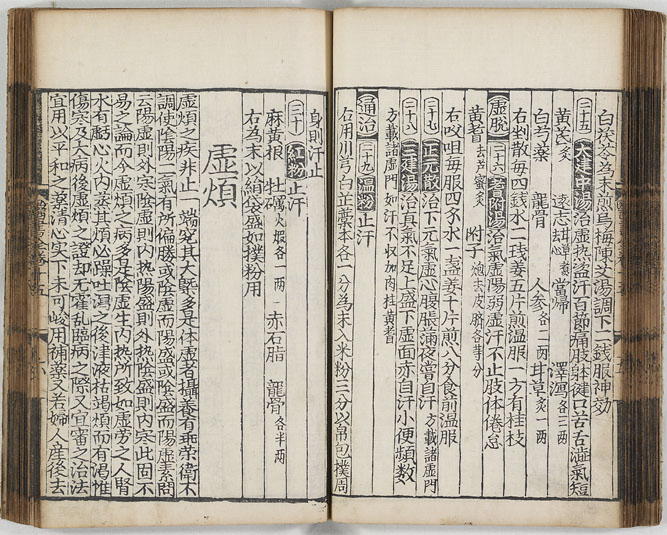 白茯苓為末煎烏梅陳艾湯調下二錢服神効
三十五 大建中湯治虛熱盜汗百節痛肢躰倦口苦舌澁氣短
黃芪炙 遠志去心 當歸 澤瀉各三兩
白芍藥 龍骨 人參各二兩 甘草炙一兩
右剉散每四錢水二琖姜五片煎溫服一方有桂枝
虛脫 三十六 耆附湯治氣虛陽弱虛汗不止肢体倦怠
黃耆去芦蜜炙 附子炮去皮臍各等分
右㕮咀每服四錢水一盞姜十片煎八分食前溫服
三十七 正元散治下元氣虛心腹脹滿夜當自汗方載諸虛門
三十八 三建湯治真氣不足上盛下虛面赤自汗小便頻數
方載諸虛門如汗不收加肉桂黃耆
通治 三十九 溫粉止汗
右用川芎白芷藁本各一分為末入米粉三分以帛包撲周
身則汗止
三十 紅粉止汗
麻黃根 牡礪火煅各一兩 赤石脂 龍骨各半兩
右為末以絹袋盛如撲粉用
虛煩
虛煩之疾非止一端究其大槩多是体虛者攝養有乖榮衛不
調使陰陽二氣有所偏勝或陰虛而陽盛或陰盛而陽虛素問
云陽虛則外寒陰虛則內熱陽盛則外熱陰盛則內寒此固不
易之論而今虛煩之病多是陰虛生內熱所致如虛勞之人腎
水有虧心火內蒸其煩必躁吐瀉之後津液枯竭煩而有渴惟
傷寒及大病後虛煩之證却无霍亂臨病之際又宜審之治法
宜用以平和之藥清心實下未可峻用補藥又若婦人產後去